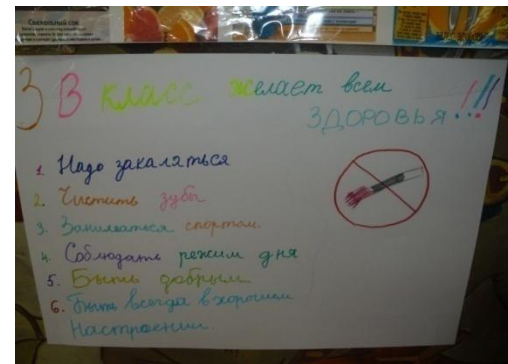 Свекольный сок
3 В класс желает всем
ЗДОРОВЬЯ!!!
1. Надо закаляться
2. Чистить зубы
3. Заниматься спортом.
4. Соблюдать режим дня
5. Быть добрым
6. Быть всегда в хорошем
Настроении.